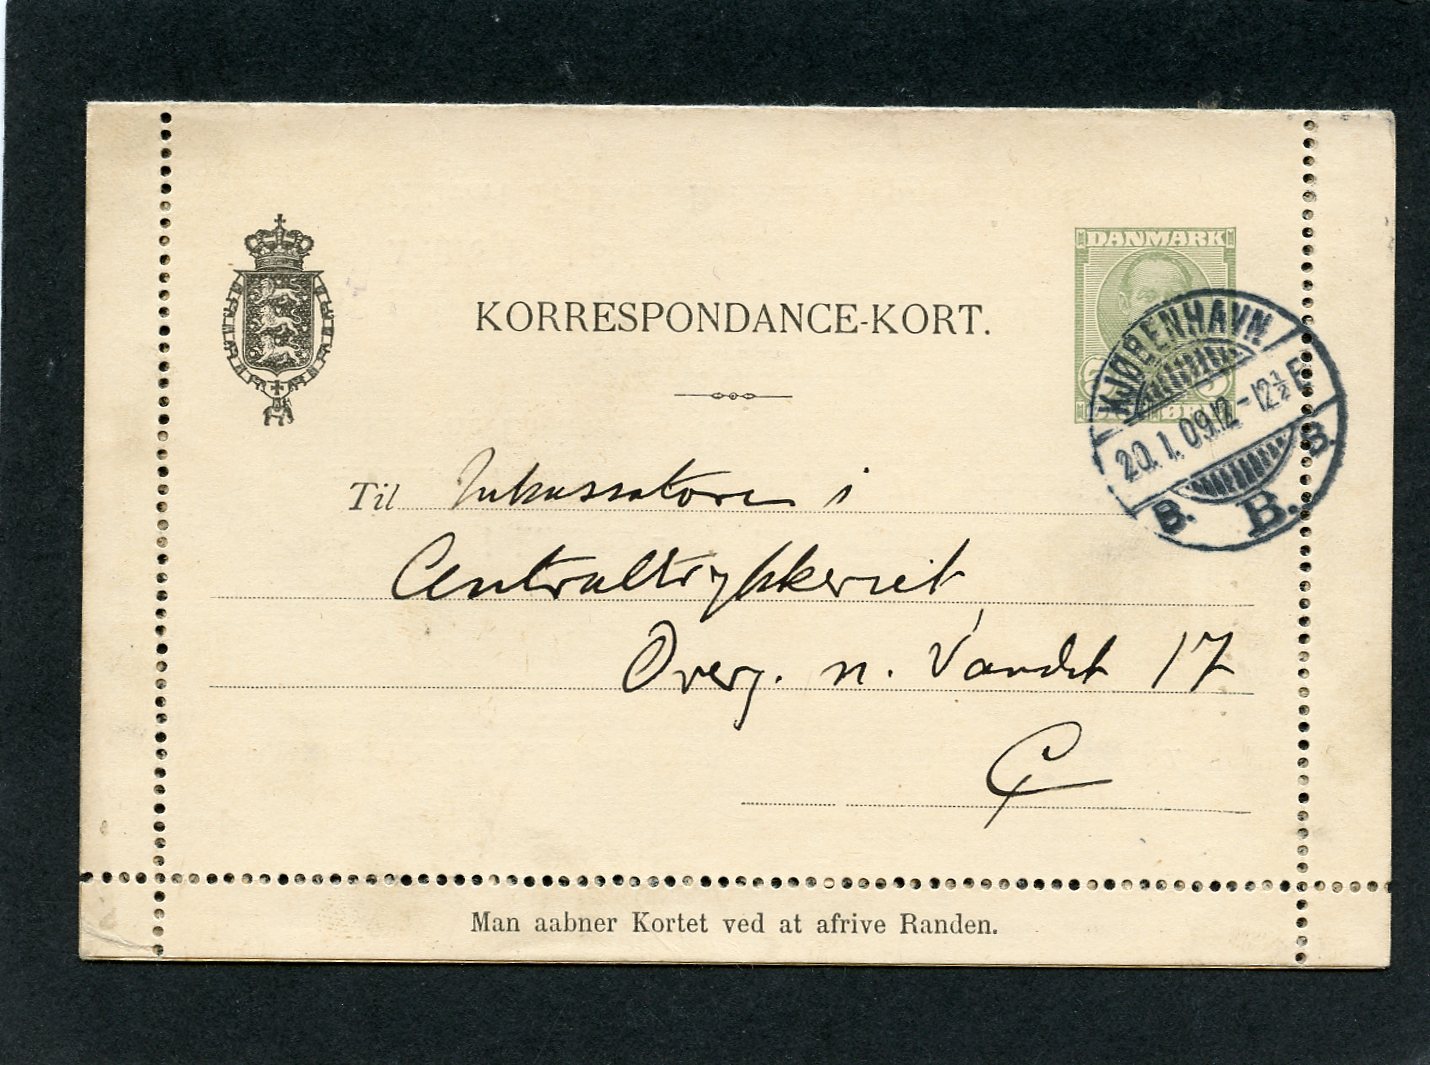 DANMARK
KORRESPONDANCE-KORT.
KJØBENHAVN
20.1.09.12-12½E
B. B. B.
Til Inkassatoren i
Centraltrykkeriet
Overg. n. Vandet 17
C
Man aabner Kortet ved at afrive Randen.